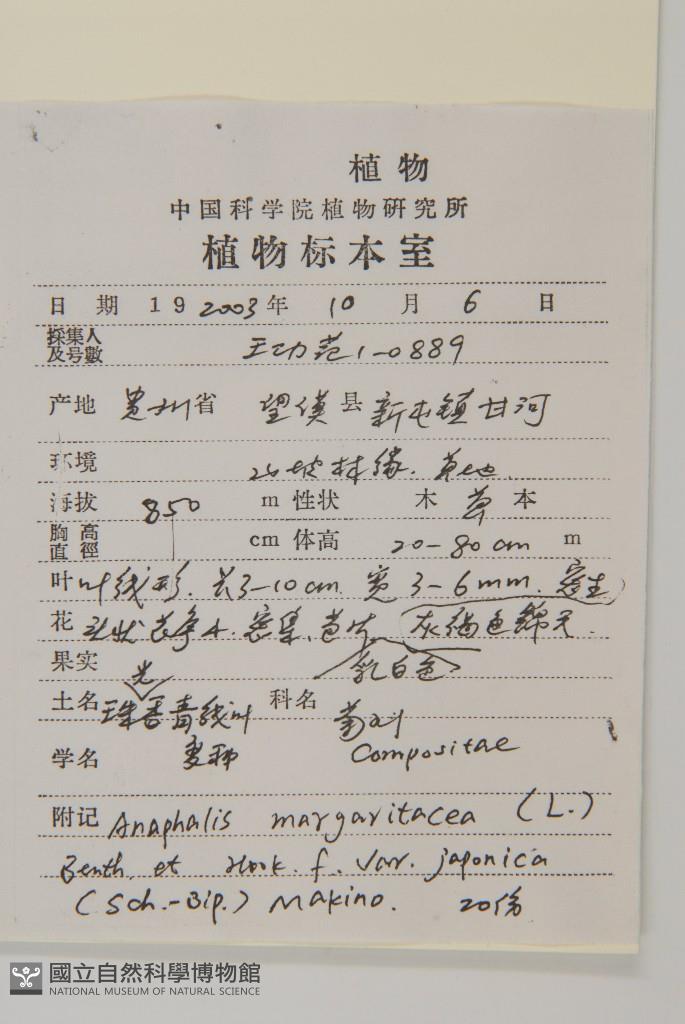 植物
中国科学院植物研究所
植物标本室
日期 19 2003年 10 月 6 日
採集人
及号數 王功范1-0889
产地 贵州省 望谟县 新屯镇甘河
环境 山坡林缘.草地.
海拔 850 m 性状 木 草 本
胸高
直徑 cm 体高 20-80cm m
叶 叶线形.长3-10cm.宽3-6mm.密生
花 头状花序小.密集.苞片 灰褐色绵毛.
果实 乳白色
土名 珠光香青线叶 科名 菊科
学名 变种 Compositae
附记 Anaphalis margaritacea (L.)
Benth. et Hook. f. var. japonica
(Sch.-Bip.) Makino. 20份
國立自然科學博物館
NATIONAL MUSEUM OF NATURAL SCIENCE